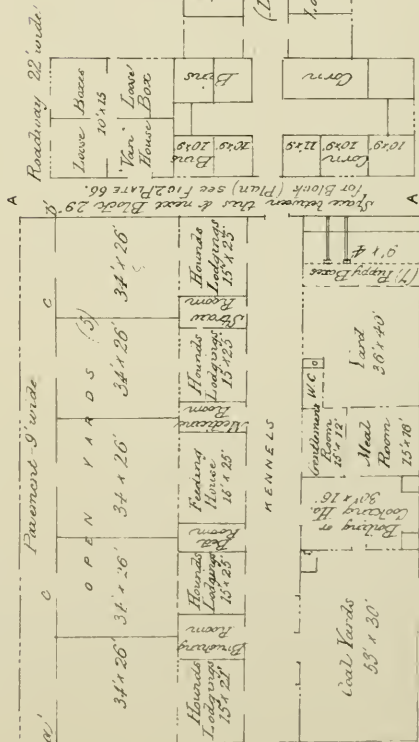 Roadway 22' wide
Loose Boxes
10' x 15
Van House
Loose Box
Bins
Corn
Bins
10' x 9
10' x 9
Corn
11' x 9
10' x 9
10' x 9
A
A
Space between this & next Block 29'
for Block (Plan) see Fig 2 Plate 66.
Pavement - 9' wide
C
C
OPEN YARDS (5)
34' x 26'
34' x 26'
34' x 26'
34' x 26'
34' x 26'
Hounds
Lodgings
15' x 25'
Straw
Room
Hounds
Lodgings
15' x 25
Medicine
Room
Feeding
House
16' x 25'
Bed
Room
Hounds
Lodgings
15' x 25
Brushing
Room
Hounds
Lodgings
KENNELS
(7) Puppy Boxes
9' x 4'
Yard
36' x 40'
W.C
Gentlemens
Room
15' x 12'
Meal
Room
15' x 18'
Boiling or
Cooking Ho.
30' x 16'
Coal Yards
53' x 30'